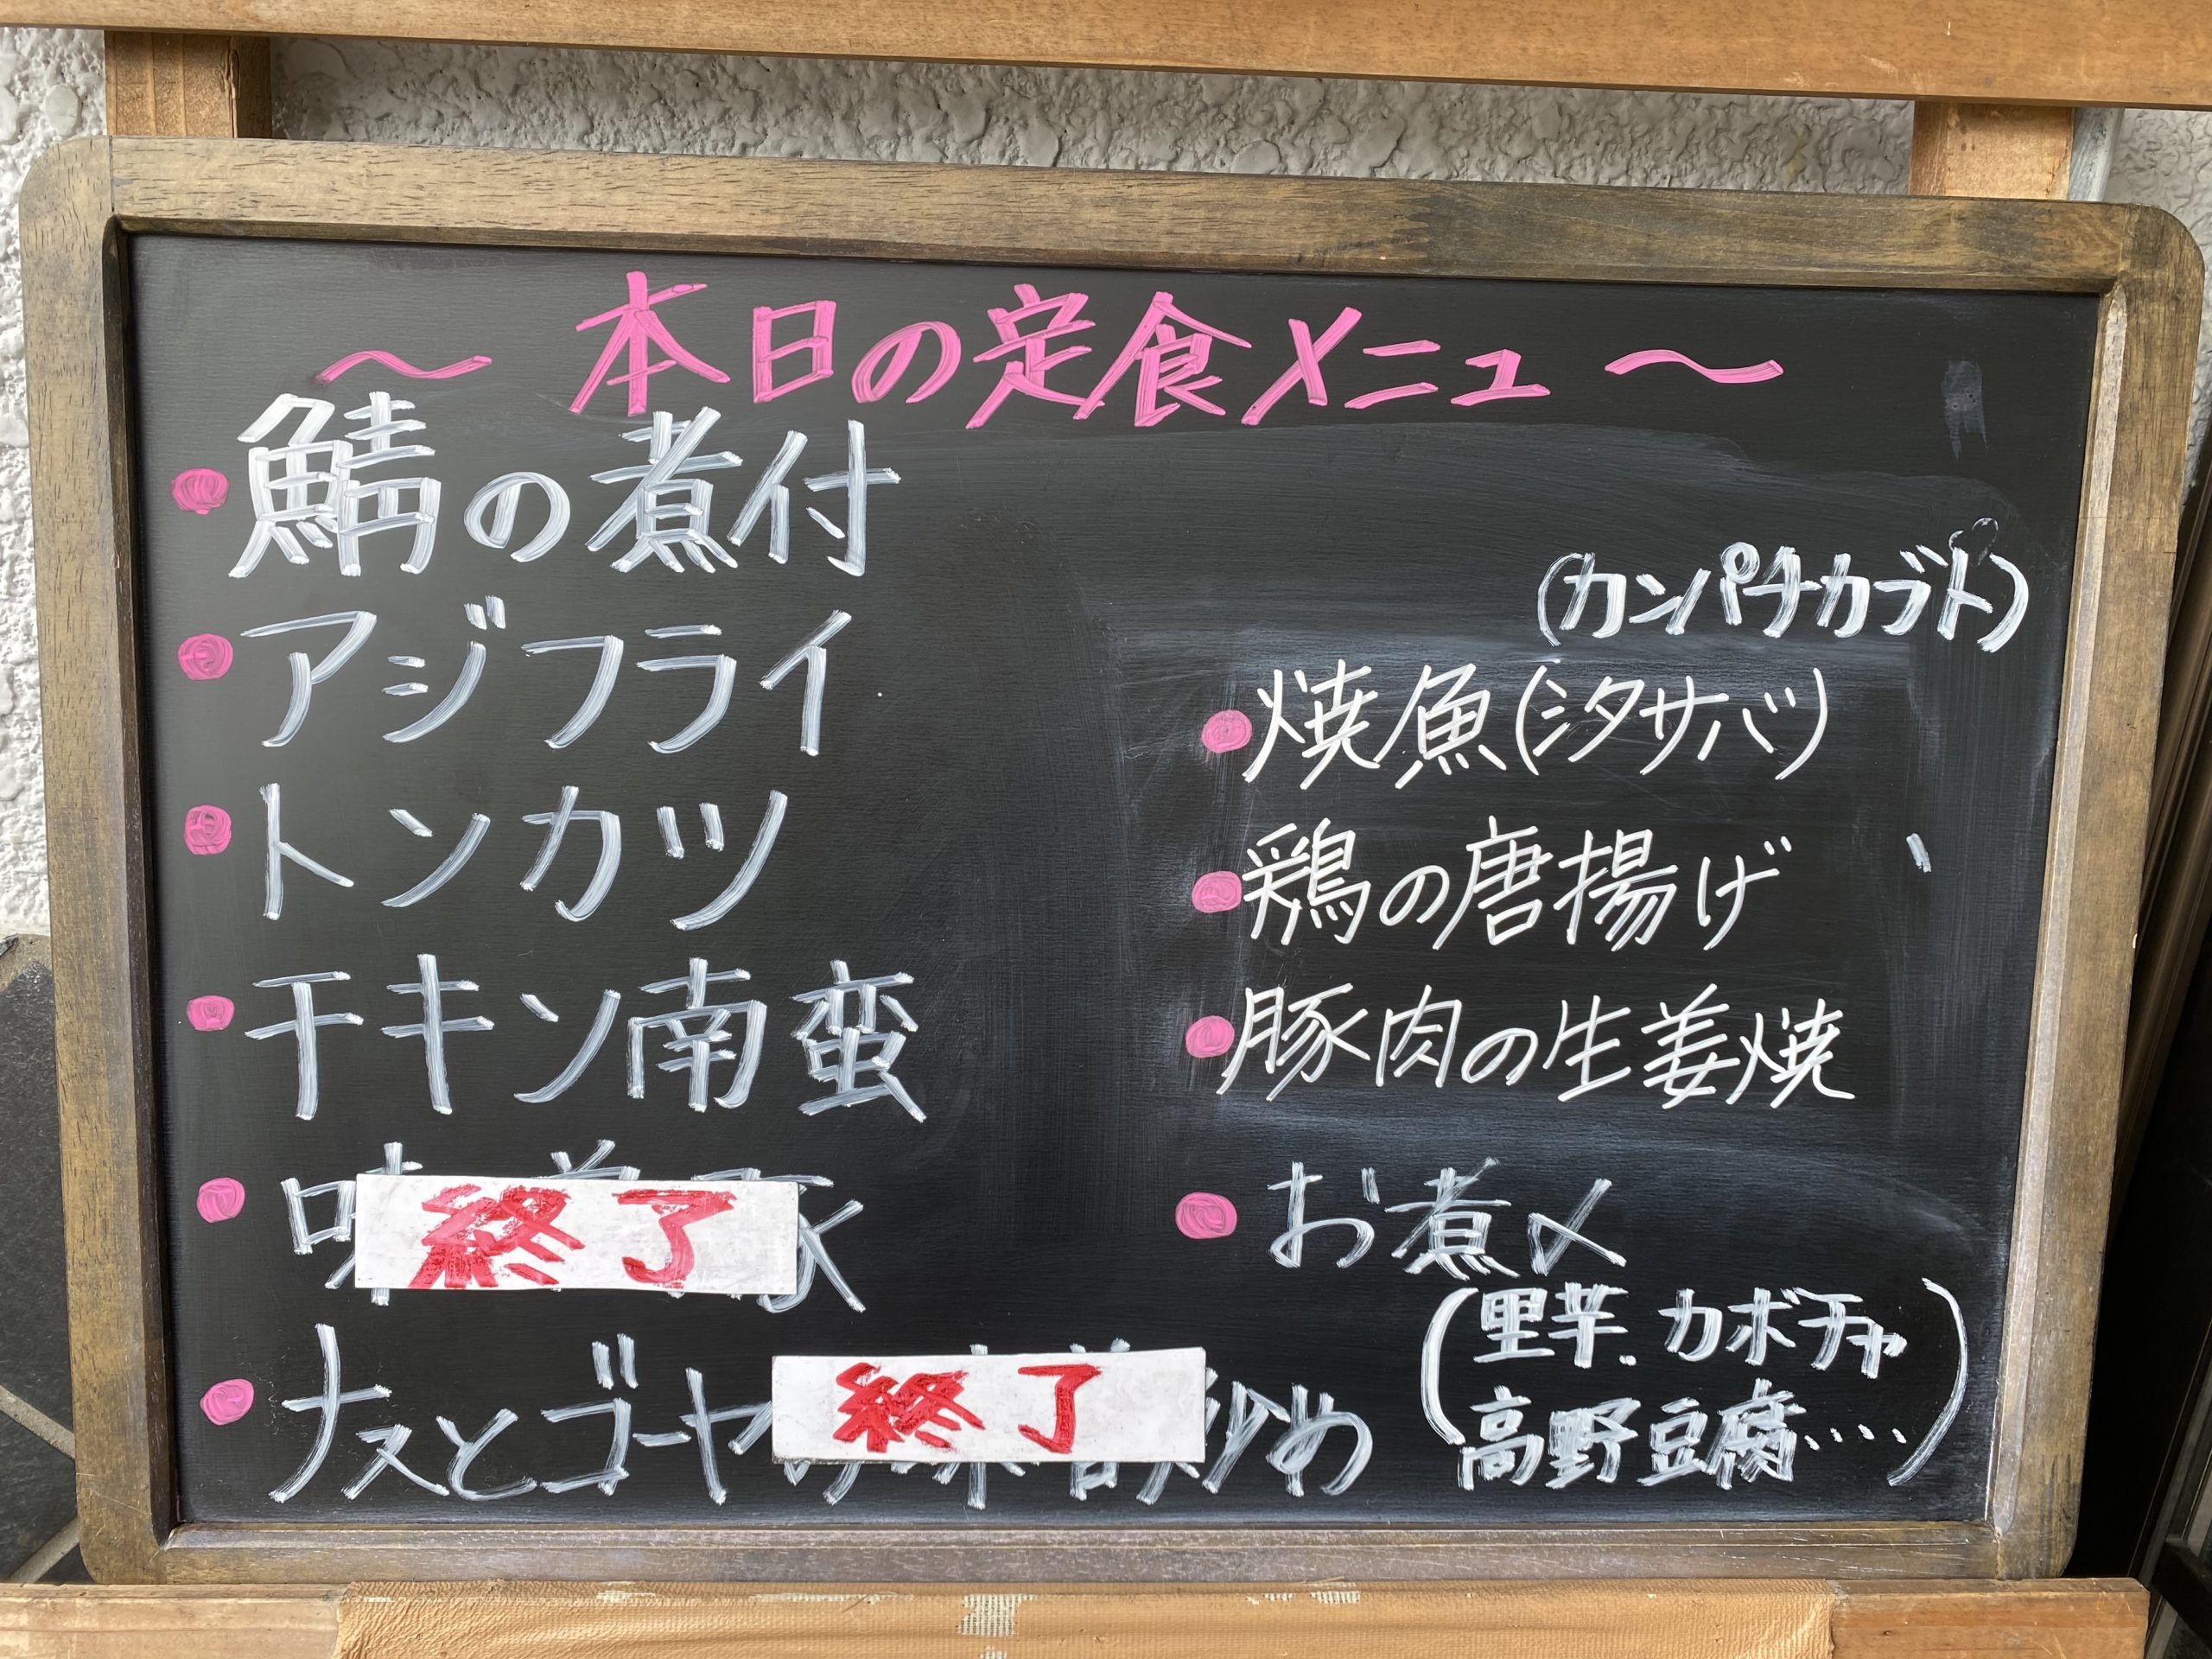 ～ 本日の定食メニュ ～
● 鯖の煮付
● アジフライ
● トンカツ
● チキン南蛮
● 終了
● ナスとゴーヤの 終了 炒め
(カンパチカブト)
● 焼魚(シタサバ)
● 鶏の唐揚げ
● 豚肉の生姜焼
● お煮〆
(里芋.カボチャ
高野豆腐‥‥)